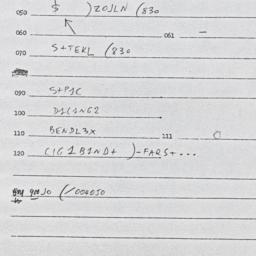 050 5 )ZOJLN (830
060 061 –
070 S+TEKL (830
090 S+P1C
100 D1C1NG2
110 BENDL3X 111
120 (IG1B1ND+ )-FARS+...